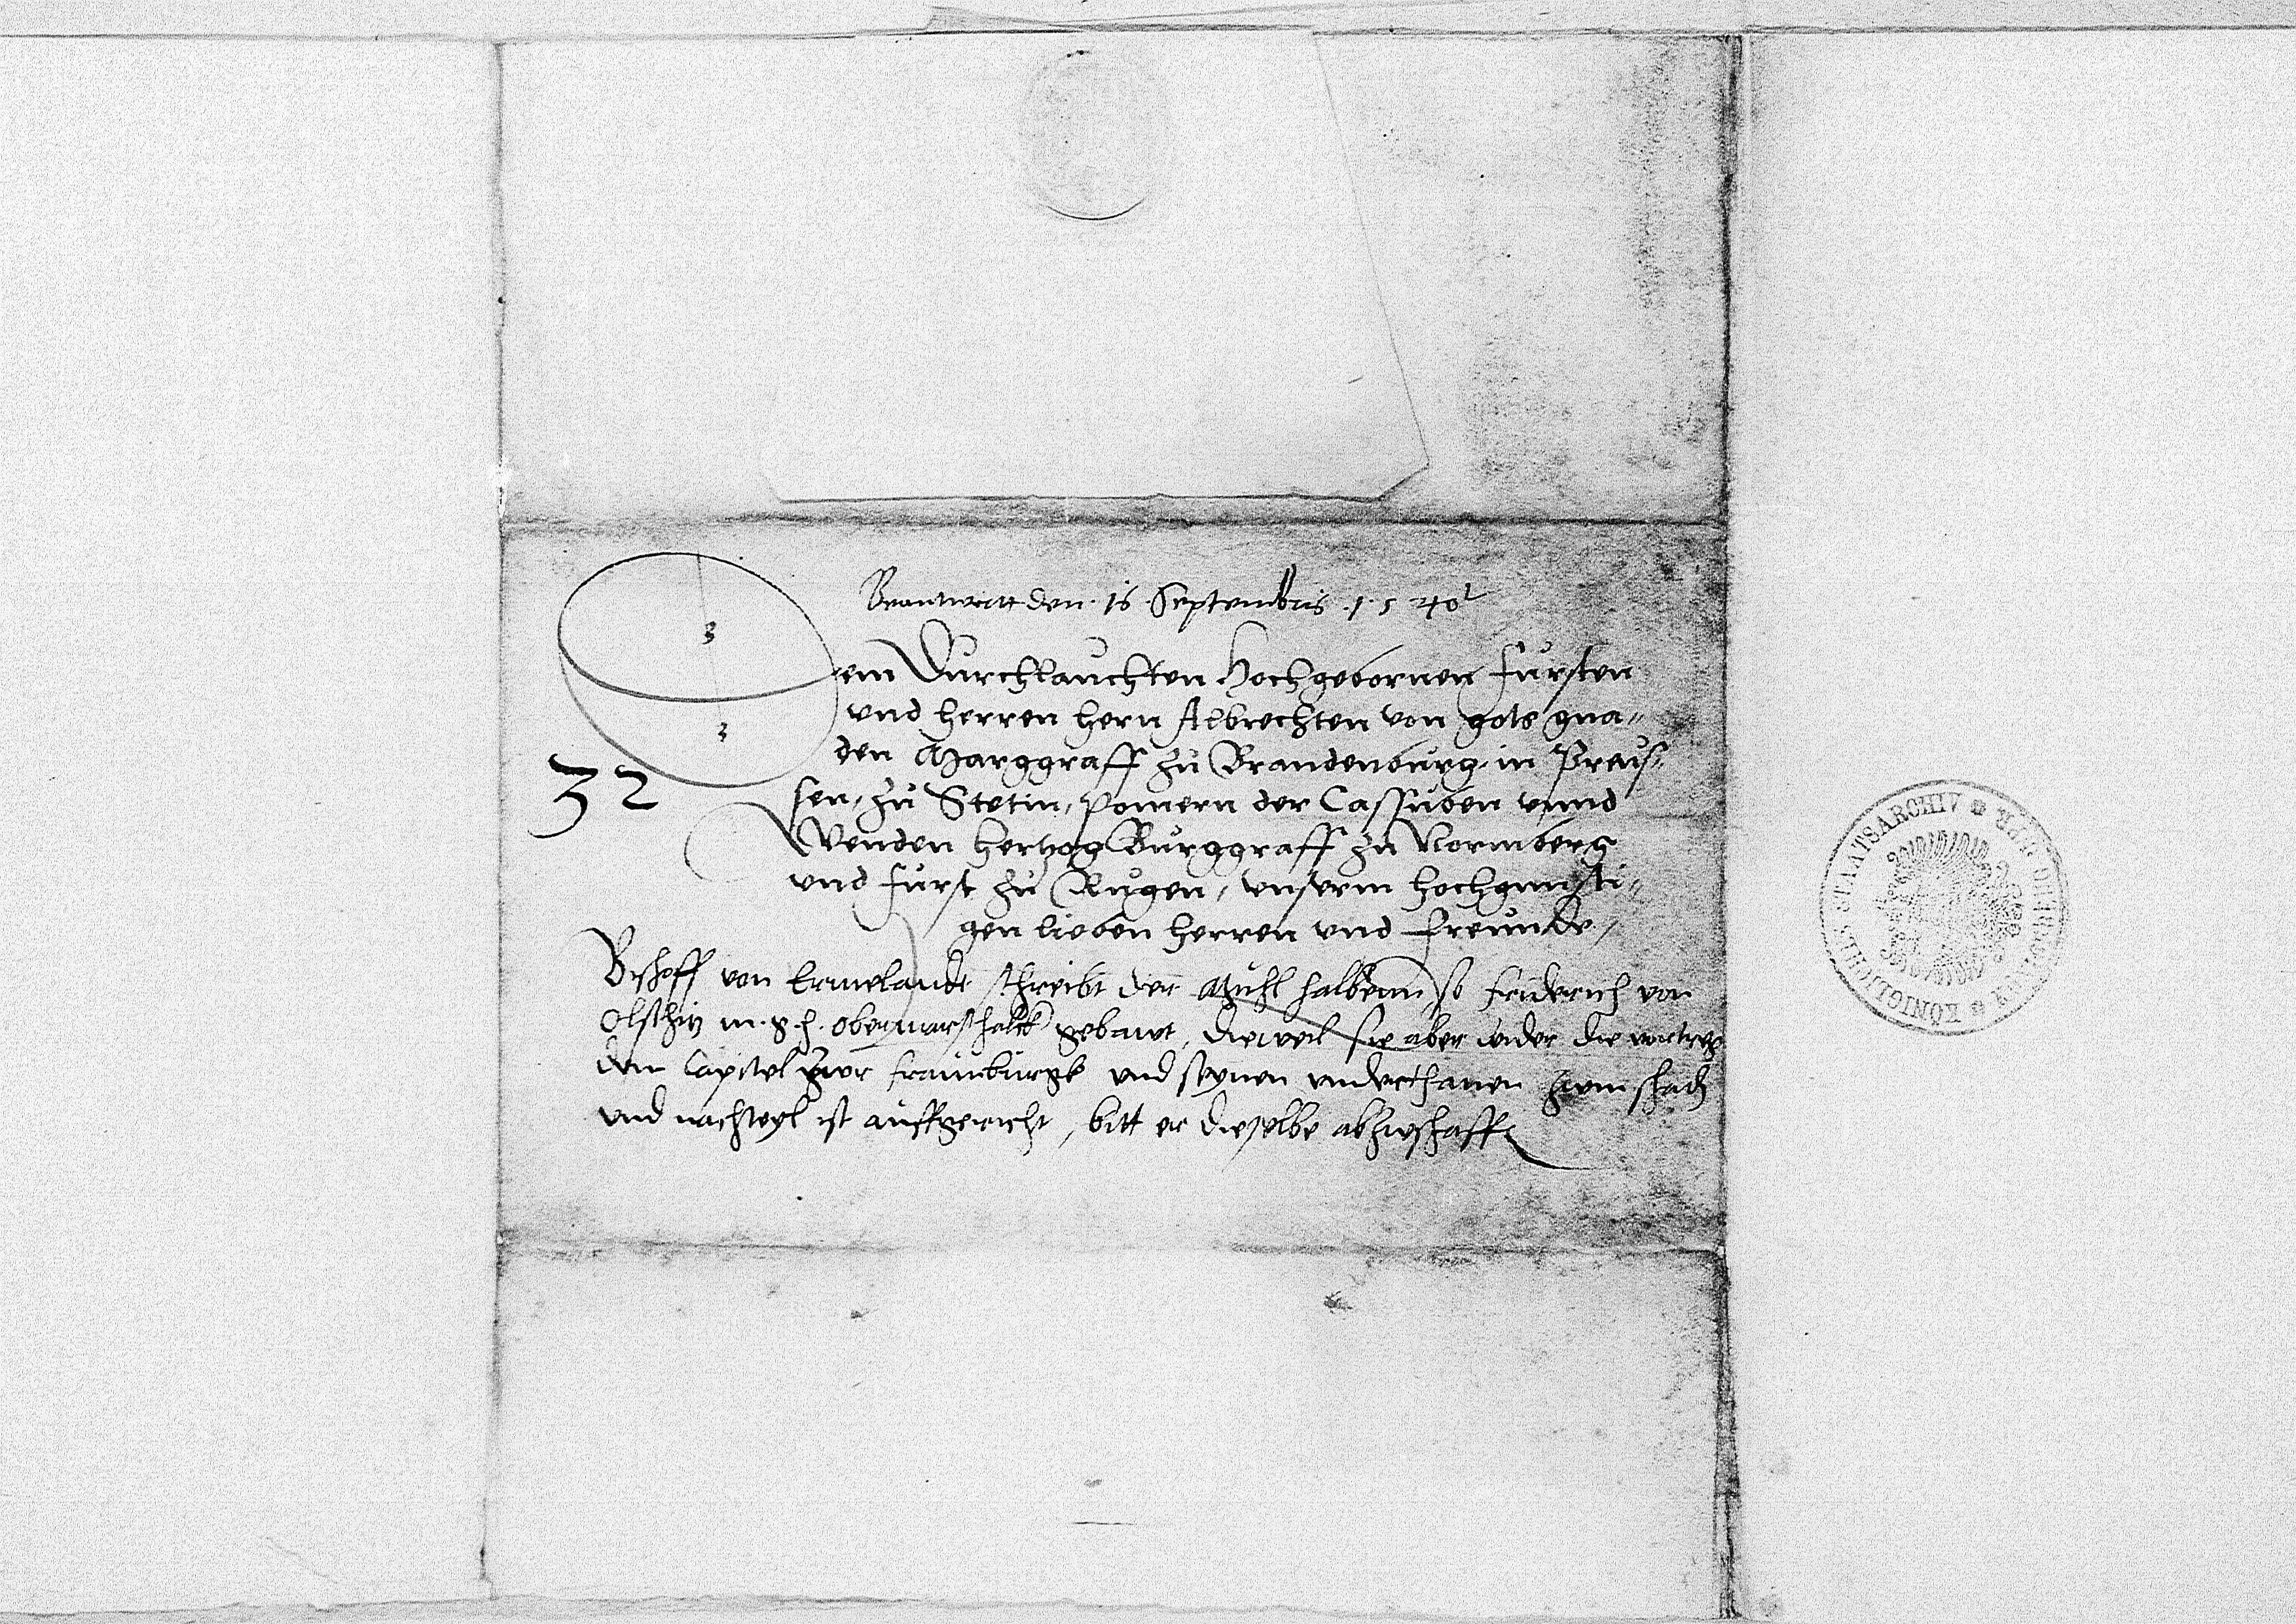 Beantwort den 16 Septembris 1540
3
Dem Durchlauchten Hochgebornen fursten
und herren hern Albrechten von gots gna-
2
den Marggraff zu Brandenburg, in Preus-
32
sen, zu Stetin, Pomern der Cassuben unnd
Wenden hertzog Burggraff zu Normberg
und furst zu Rugen, unserm hochgunsti-
gen lieben herren und freunde,
Bischoff von Ermelandt schreibt der Muhl halbenn, so friderich von
Olschitz m. g. h. obermarschalck gebawt, dieweil sie aber wider die vertreg
dem Capitel zwr frauenburgk und seynen underthanen zwm schad
und nachteyl ist auffgericht, bitt er dieselbe abzwschaff
KÖNIGLICHES STAATSARCHIV